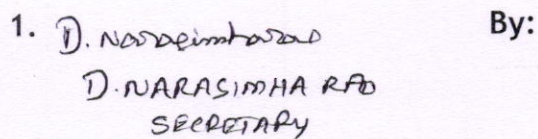 1. D. Narasimharao By:
D. NARASIMHA RAO
SECRETARY